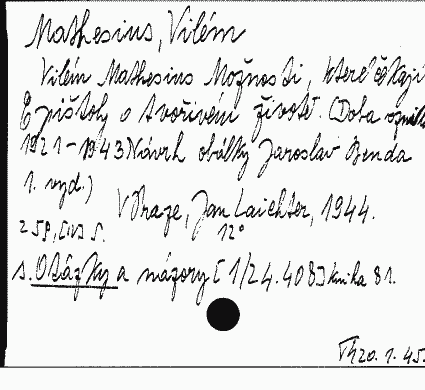 Mathesius, Vilém
Vilém Mathesius Možnosti, které čekají
Epištoly o tvořivém životě. (Doba vzniku
1921-1943) Návrh obálky Jaroslav Benda
1. vyd.)
V Praze, Jan Laichter, 1944.
258, [IV] S. 12°
s. Otázky a názory [1/24.408] kniha 81.
Th20.1.45.